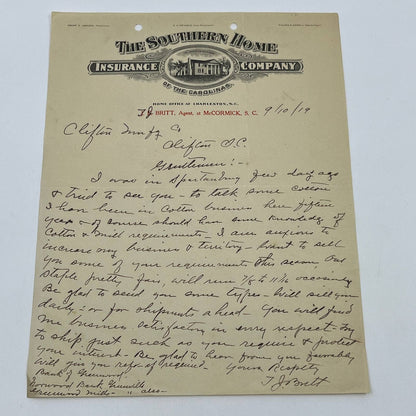 THE SOUTHERN HOME
INSURANCE COMPANY
OF THE CAROLINAS
HOME OFFICE AT CHARLESTON, S.C.
TJ BRITT, Agent, at McCORMICK, S. C. 9/10/19
Clifton Mnfg Co
Clifton S.C.
Gentlemen:-
I was in Spartanburg few days ago
& tried to see you - to talk some cotton
I have been in Cotton busines here fifteen
years & of course should have some knowledg of
Cotton & Mill requirements - I am auxious to
increase my busines & territory - Want to sell
you some of your requirements this season, Our
Staple pretty fair, will run 7/8 to 1 1/16 occasionly
Be glad to send you some types - Will sell you
daily, or for shipments ahead. You will find
me business satisfactory in every respect - Try
to ship just such as you require & protect
your interest - Be glad to hear from you favorably
Will give you refer if required - Yours Respctly
Bank of Greenwood. T J Britt
Norwood Bank Greenville
Greenwood Mills - " also -